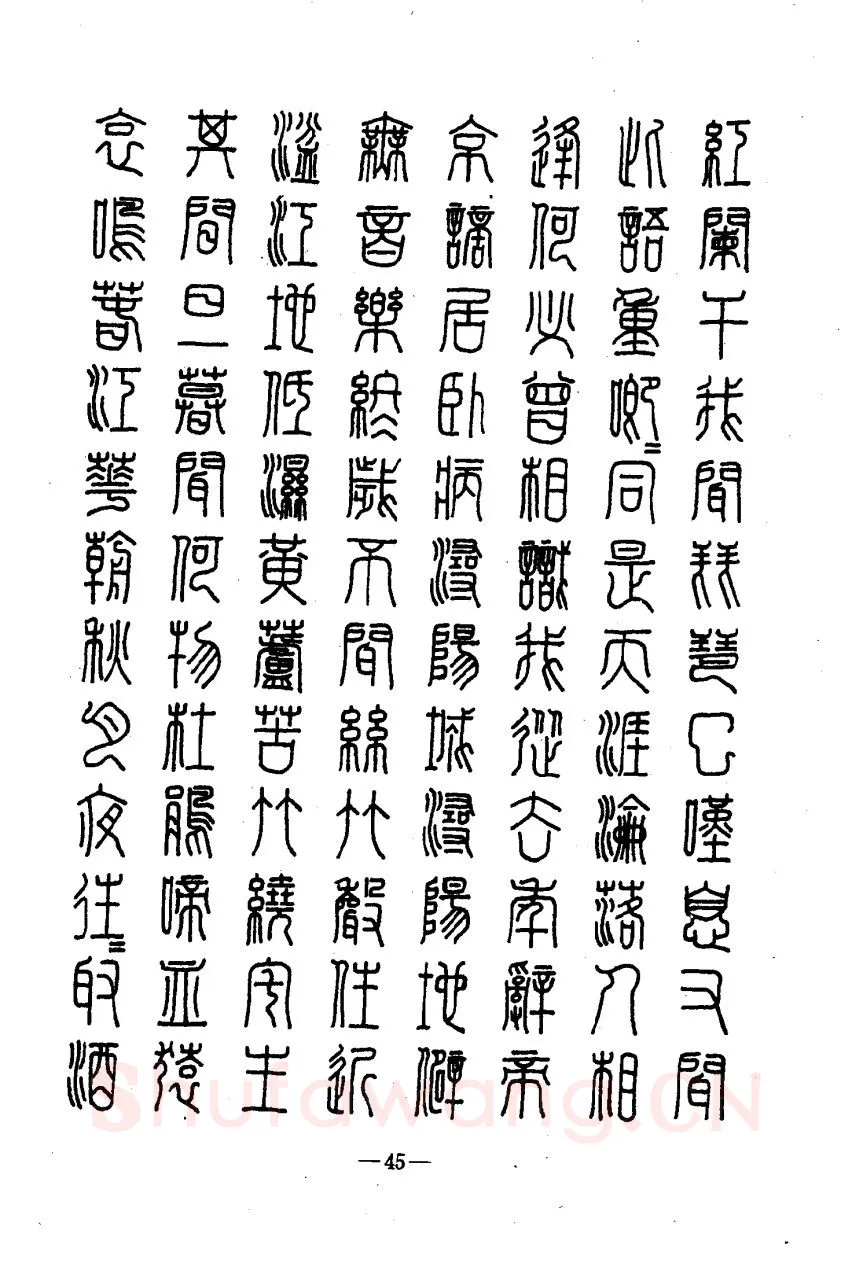 紅闌干我聞琵琶已嘆息又聞
此語重唧〻同是天涯淪落人相
逢何必曾相識我從去年辭帝
京謫居臥病潯陽城潯陽地僻
無音樂終歲不聞絲竹聲住近
湓江地低濕黃蘆苦竹繞宅生
其間旦暮聞何物杜鵑啼血猿
哀鳴春江花朝秋月夜往〻取酒
Shufawang.CN
—45—